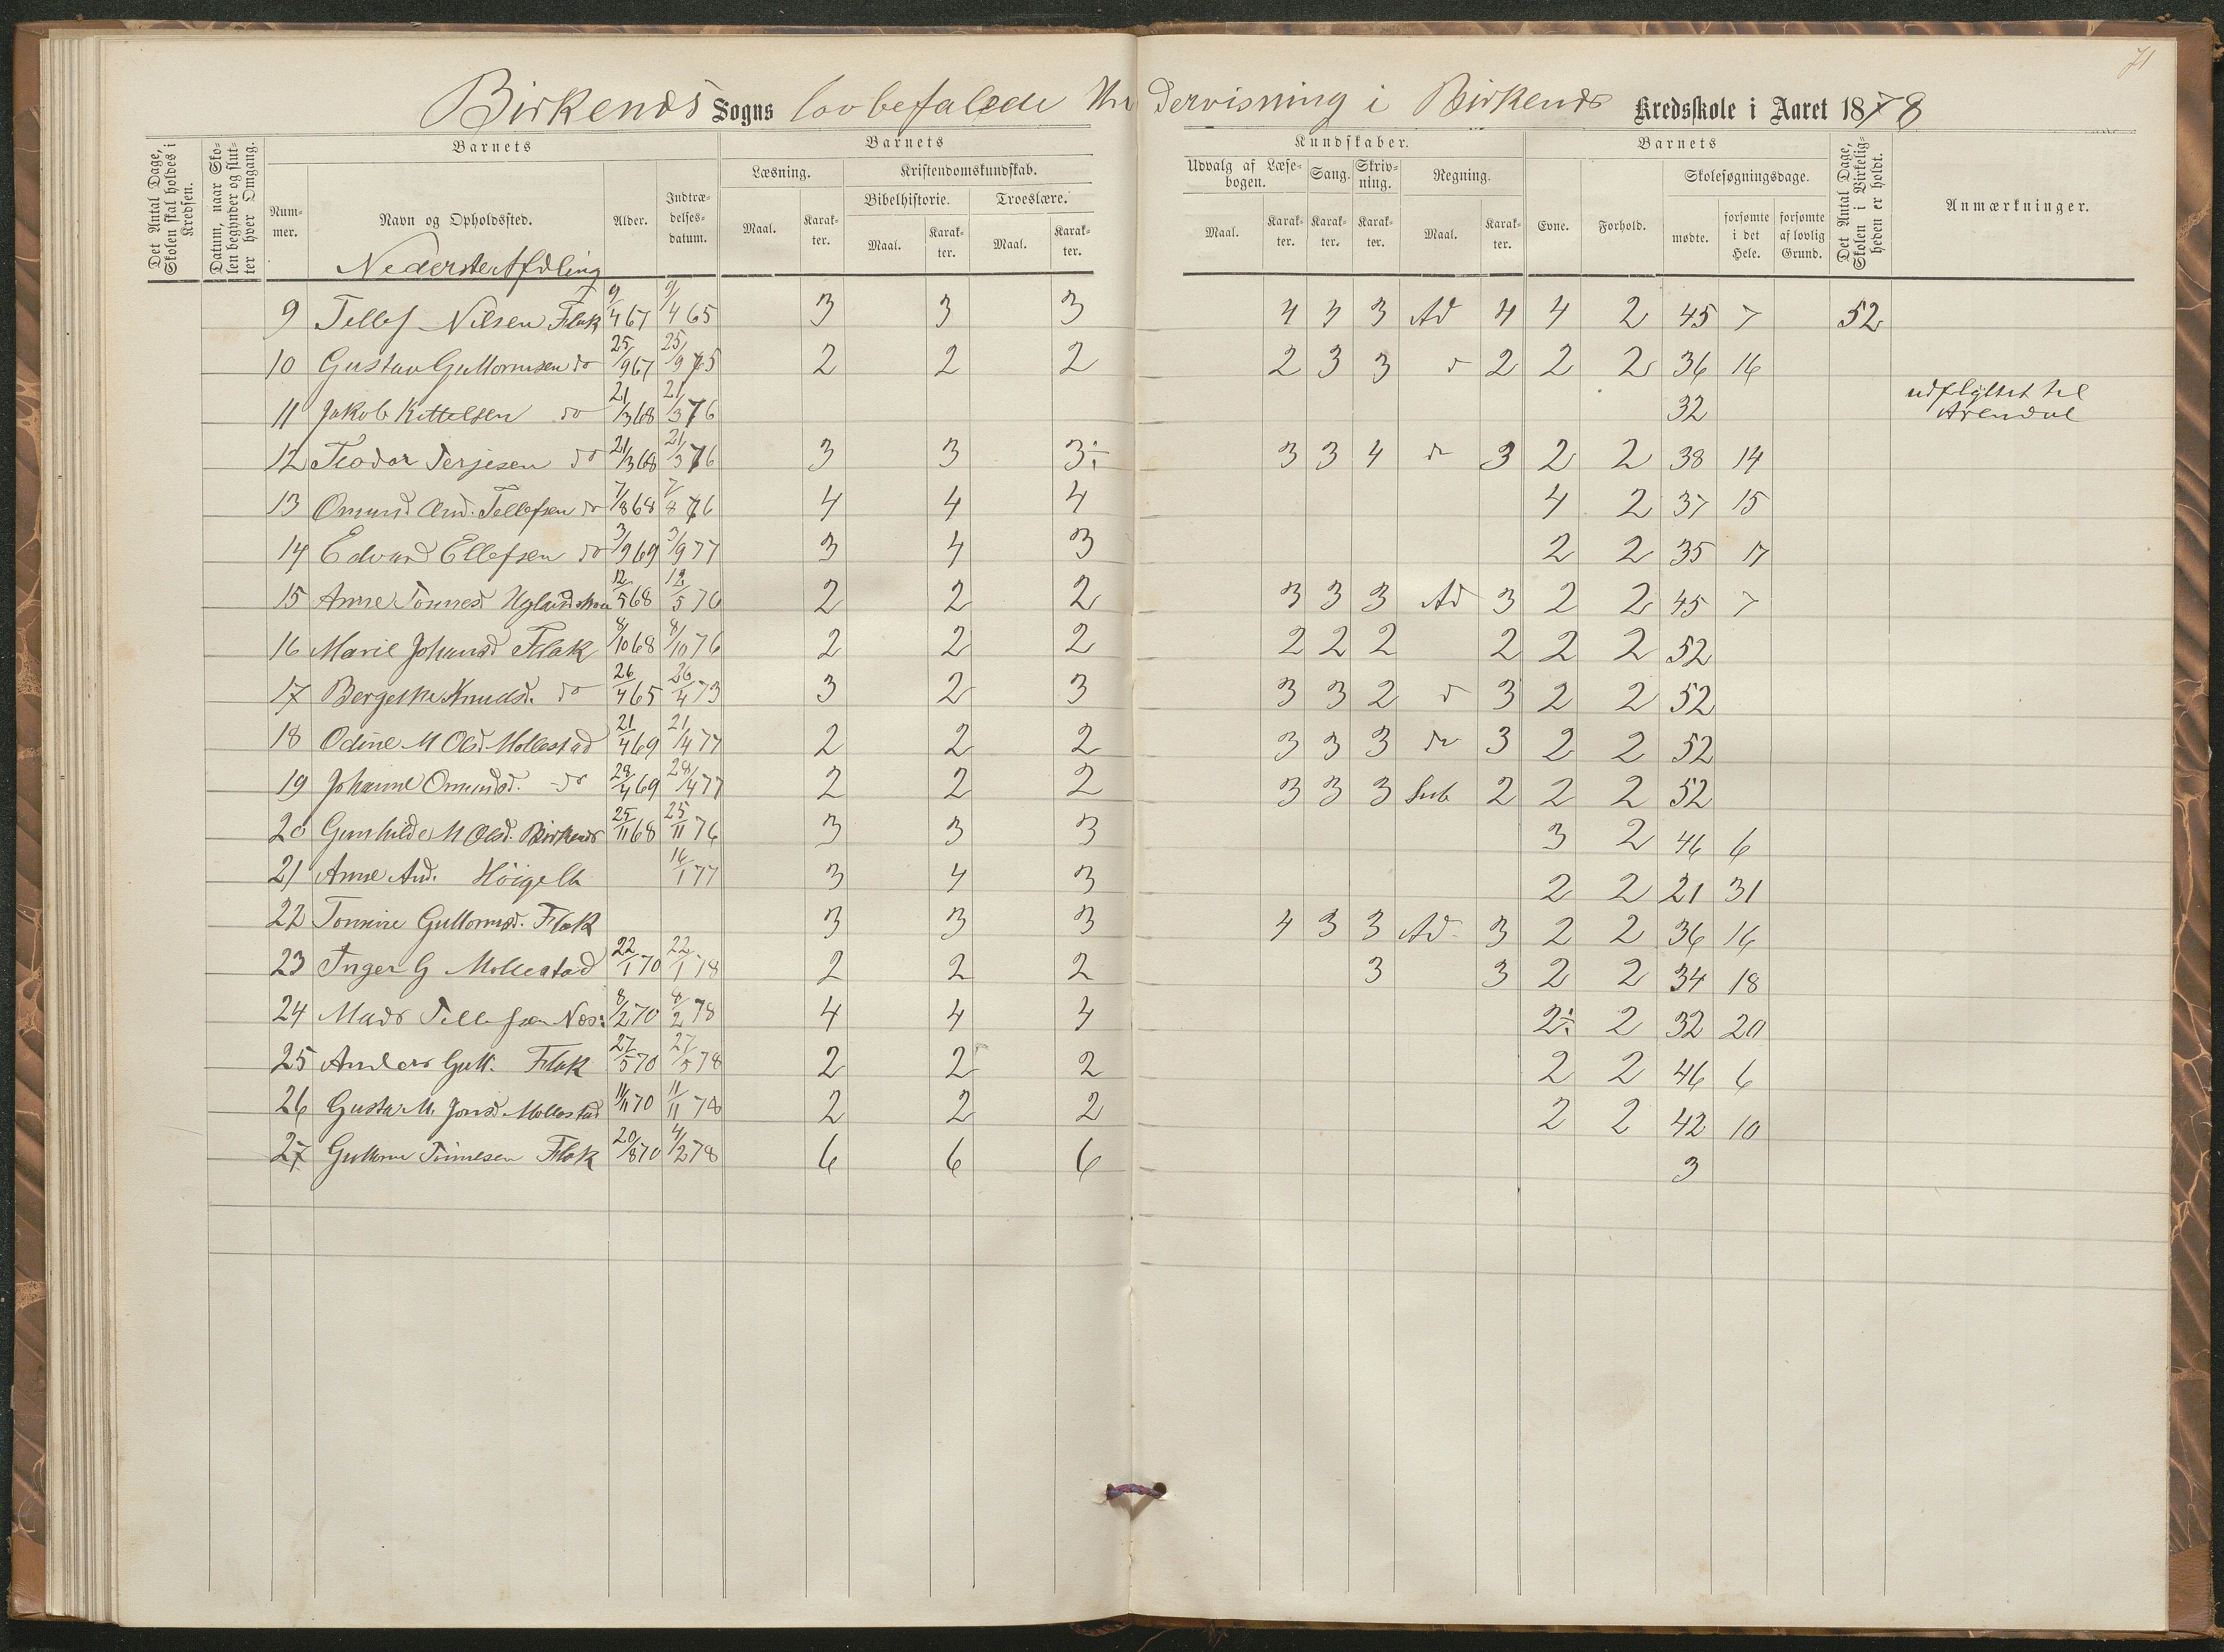 71
Birkenes Sogns lovbefalede Undervisning i Birkenes Kredsskole i Aaret 1878
Det Antal Dage, Skolen skal holdes i Kredsen.
Datum, naar Skolen begynder og slutter hver Omgang.
Barnets
Nummer.
Navn og Opholdssted.
Alder.
Indtrædelsesdatum.
Barnets
Læsning.
Maal. Karakter.
Kristendomskundskab.
Bibelhistorie. Troeslære.
Maal. Karakter. Maal. Karakter.
Kundskaber.
Udvalg af Læsebogen. Sang. Skrivning. Regning.
Maal. Karakter. Karakter. Karakter. Maal. Karakter.
Barnets
Evne. Forhold.
Skolesøgningsdage.
mødte. forsømte i det Hele. forsømte af lovlig Grund.
Det Antal Dage, Skolen i Virkeligheden er holdt.
Anmærkninger.
Nederste Afdeling
9 Tellef Nilsen Flak 9/4 67 9/4 65 3 3 3 4 4 3 Ad 4 4 2 45 7 52
10 Gustav Guttormsen do 25/9 67 25/9 75 2 2 2 2 3 3 d 2 2 2 36 16
11 Jakob Kittelsen do 21/3 68 21/3 76 32 udflyttet til Arendal
12 Teodor Terjesen do 21/3 68 21/3 76 3 3 3÷ 3 3 4 do 3 2 2 38 14
13 Omund And. Tellefsen do 7/8 68 7/8 76 4 4 4 4 2 37 15
14 Edvard Ellefsen do 3/9 69 3/9 77 3 4 3 2 2 35 17
15 Anne Tønnesd. 12/5 68 12/5 76 2 2 2 3 3 3 Ad 3 2 2 45 7
16 Marie Johansd Flak 8/10 68 8/10 76 2 2 2 2 2 2 2 2 2 52
17 Bergethe Knudsd. do 26/4 65 26/4 73 3 2 3 3 3 2 d 3 2 2 52
18 Odine M Olsd. Mollestad 21/4 69 21/4 77 2 2 2 3 3 3 do 3 2 2 52
19 Johanne Omundsd. do 28/4 69 28/4 77 2 2 2 3 3 3 Sub 2 2 2 52
20 Gunhilde M Olsd. Birkenes 25/11 68 25/11 76 3 3 3 3 2 46 6
21 Anne And. 16/1 77 3 4 3 2 2 21 31
22 Tomine Guttormsd. Flak 3 3 3 4 3 3 Ad 3 2 2 36 16
23 Inger G Mollestad 22/1 70 22/1 78 2 2 2 3 3 2 2 34 18
24 Mads Tellefsen Nes: 8/2 70 8/2 78 4 4 4 2÷ 2 32 20
25 Anders Gutt. Flak 27/5 70 27/5 78 2 2 2 2 2 46 6
26 Gusta M. Jonsd. Mollestad 11/11 70 11/11 78 2 2 2 2 2 42 10
27 Guttorm Tønnesen Flak 20/8 70 4/2 78 6 6 6 3